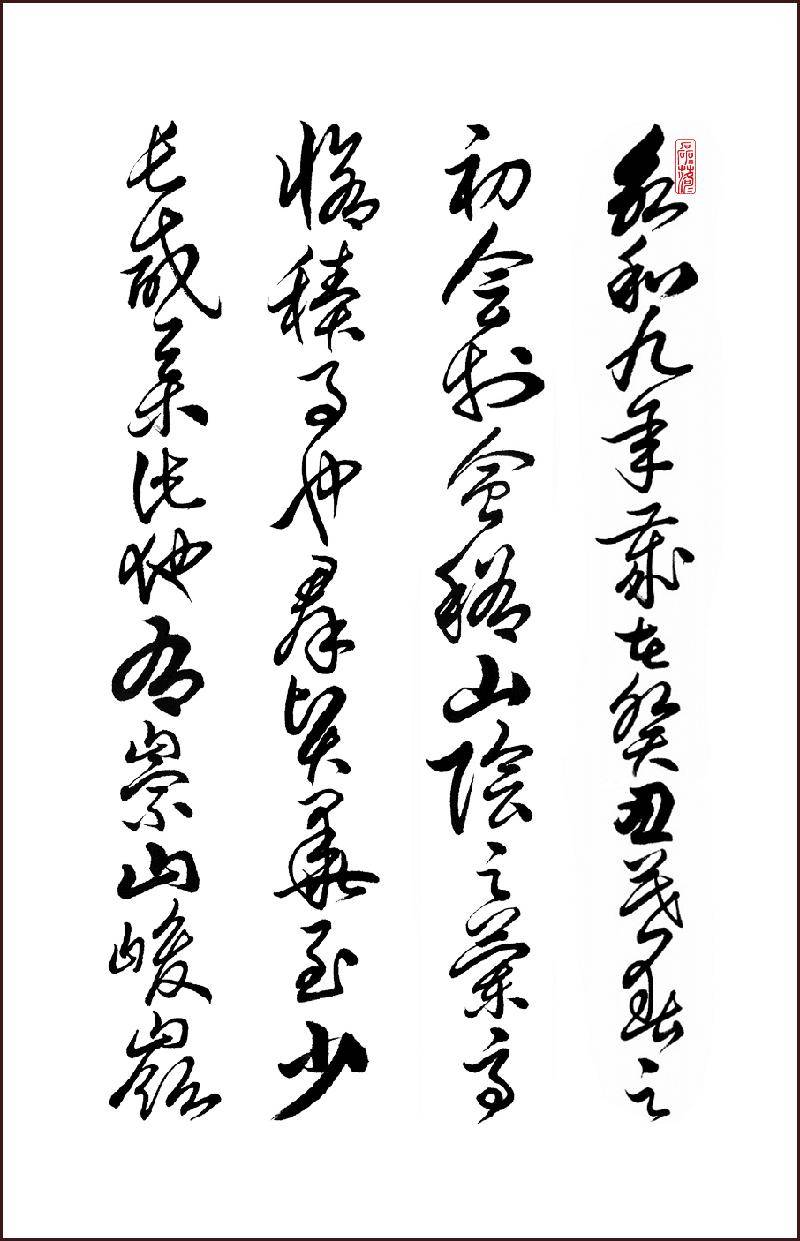 永和九年歲在癸丑暮春之
初会於會稽山陰之蘭亭
脩稧事也群賢畢至少
長咸集此地有崇山峻嶺